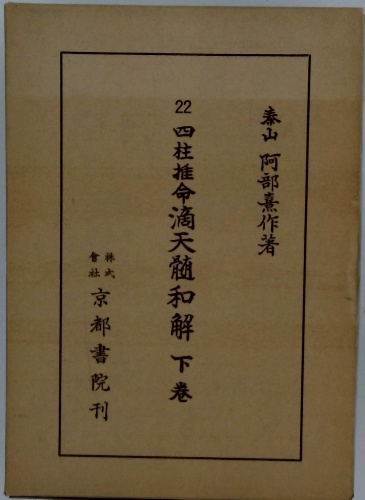 泰山 阿部熹作著
22 四柱推命滴天髓和解 下巻
株式會社 京都書院刊